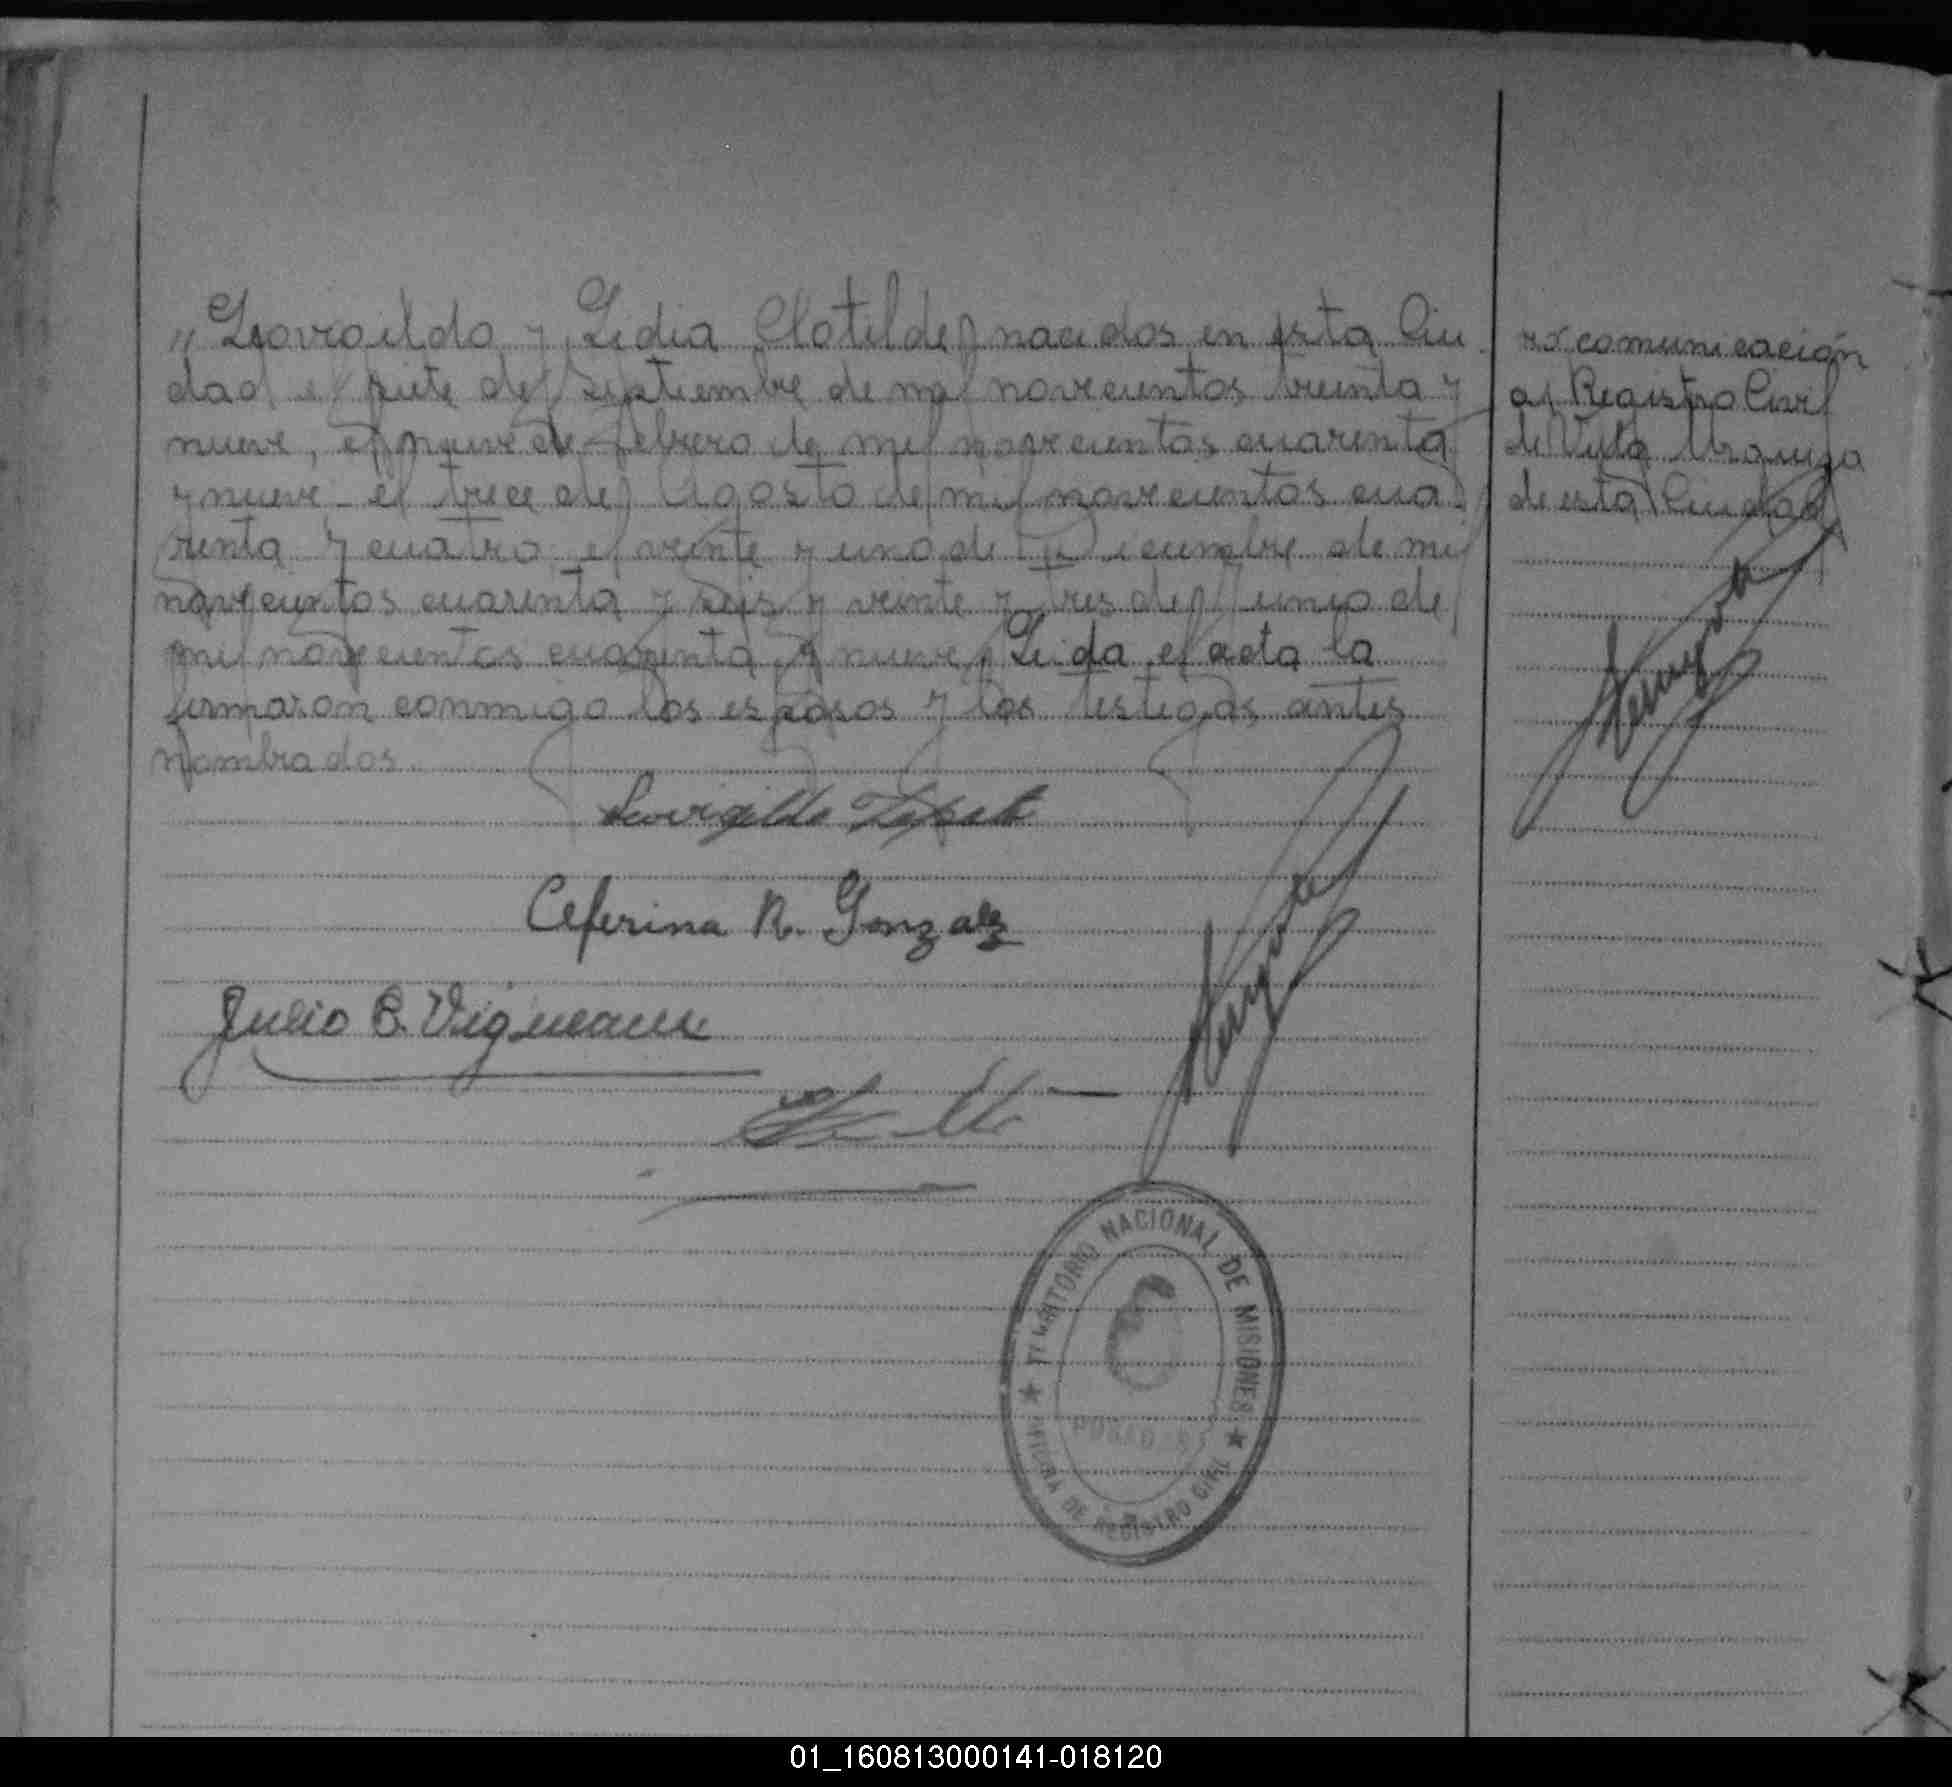 " Leovigildo y Lidia Clotilde, nacidos en esta Ciu
dad el siete de Septiembre de mil novecientos treinta y
nueve, el nueve de Febrero de mil novecientos cuarenta
y nueve - el trece de Agosto de mil novecientos cua
renta y cuatro el veinte y uno de Diciembre de mil
novecientos cuarenta y seis y veinte y tres de Junio de
mil novecientos cuarenta y nueve, Leida el acta la
firmaron conmigo los esposos y los testigos antes
nombrados.
Leovigildo Zapata
Ceferina R. Gonzalez
Julio C. Vigneau
TERRITORIO NACIONAL DE MISIONES
POSADAS
JEFATURA DE REGISTRO CIVIL
comunicación
al Registro Civil
de Villa Urquiza
de esta Ciudad
01_160813000141-018120